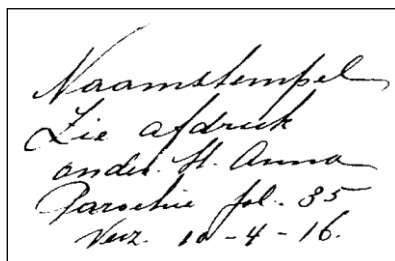 Naamstempel
Zie afdruk
onder St. Anna
Parochie fol. 35
Verz. 10-4-16.